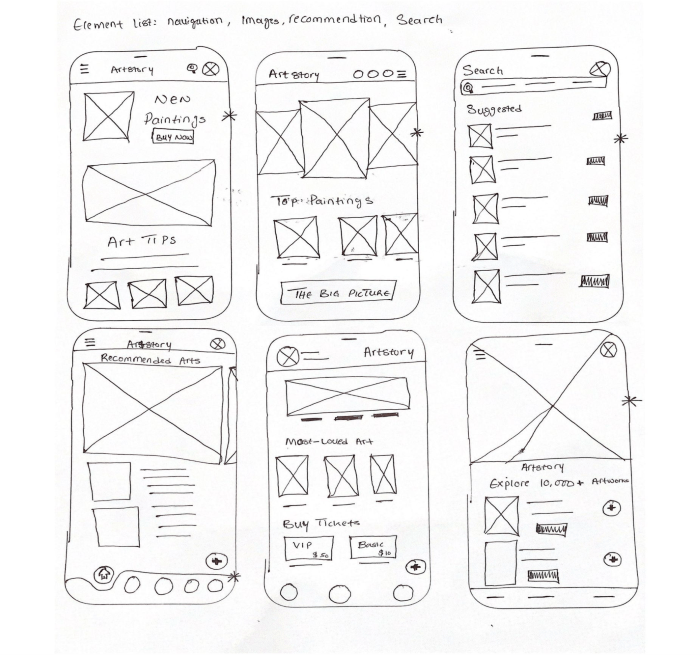 Element list: navigation, Images, recommendtion, Search
Artstory
New
Paintings
BUY NOW
Art TIPS
Artstory
Top Paintings
THE BIG PICTURE
Search
Suggested
Artstory
Recommended Arts
Artstory
Most-Loved Art
Buy Tickets
VIP
$50
Basic
$10
Artstory
Explore 10,000+ Artworks